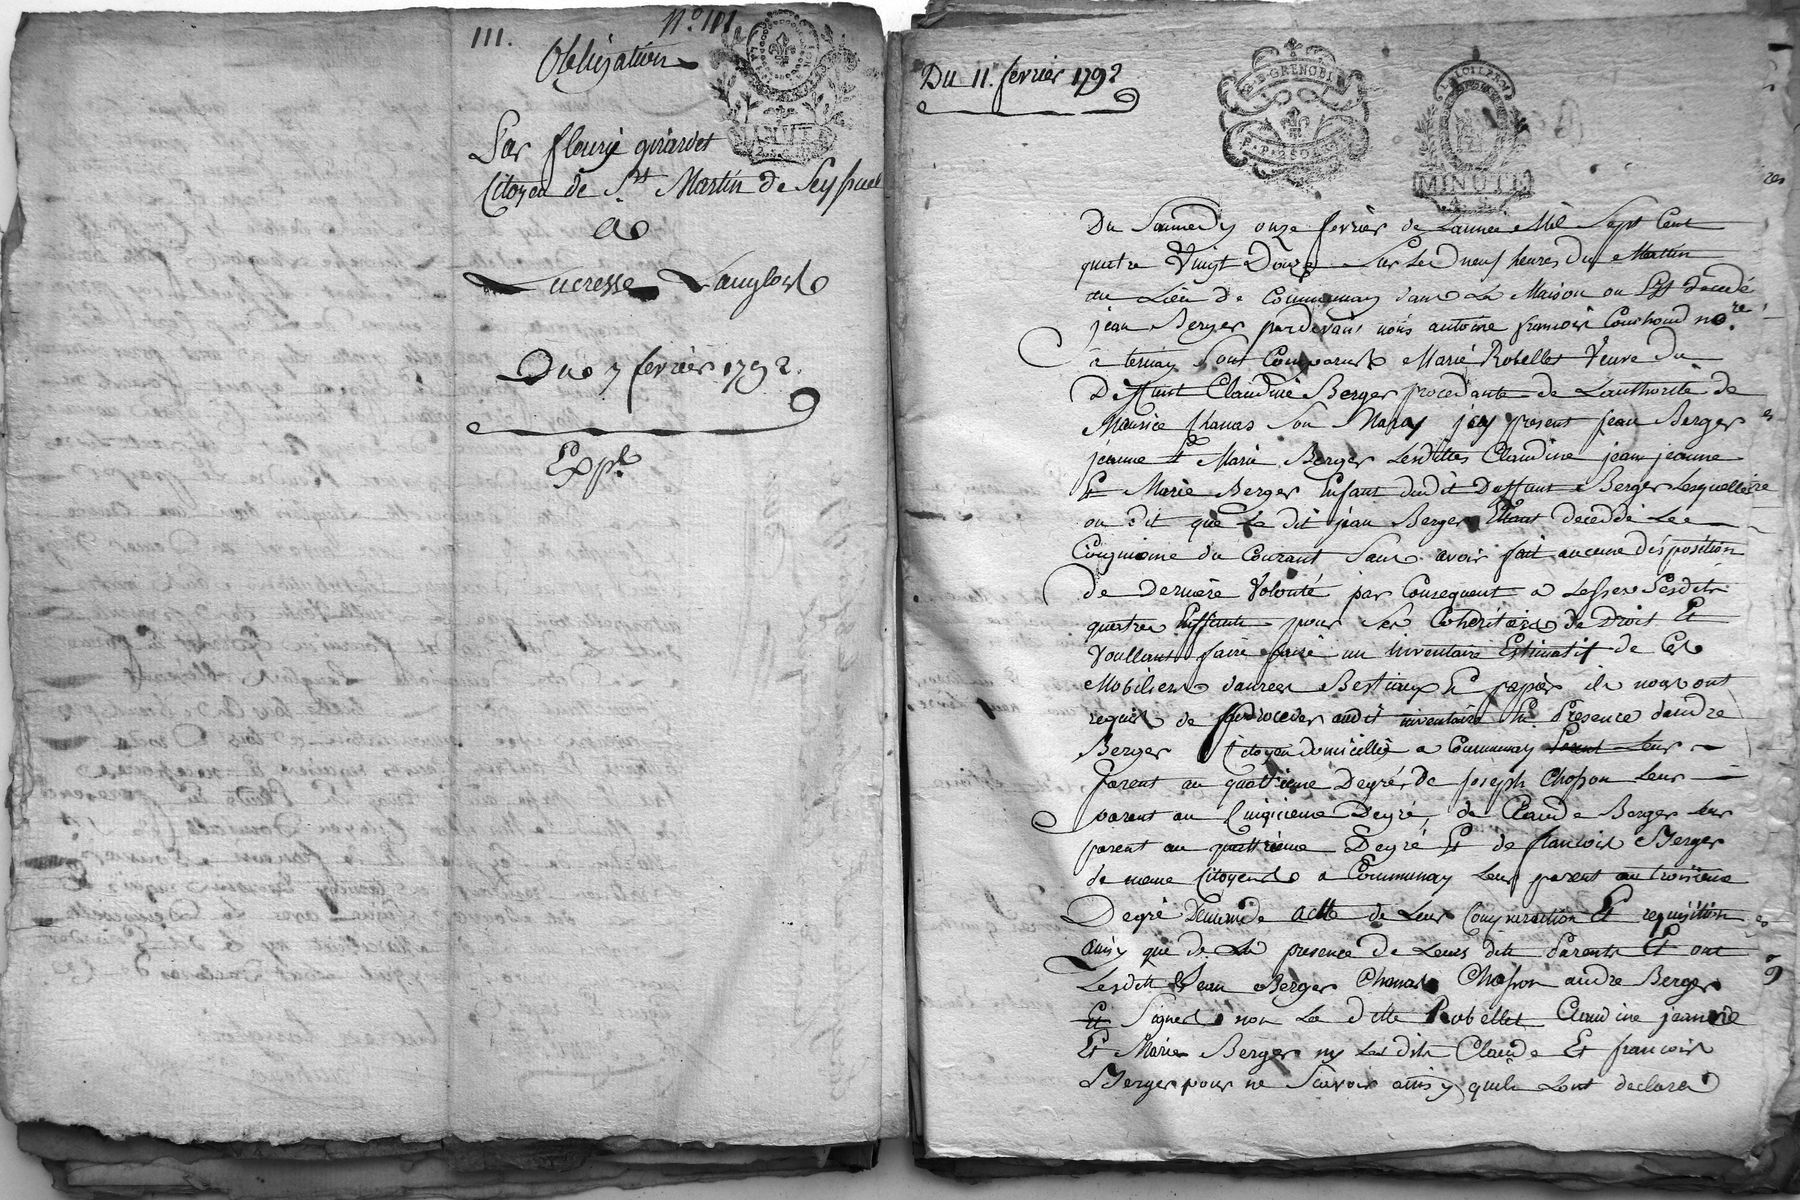 111.
N° 111
Obligation
Par fleurie girardet
Citoyen de St Martin de Seyssuel
A
Lucresse Langlois
Du 7 fevrier 1792.
Expé
Du 11. fevrier 1792
GRENOBLE
LA LOI LE ROI
MINUTE
4. S.
Du Samedy onze fevrier de Lannée Mil Sept Cent
quatre Vingt Douze Sur Les neuf heures du Mattin
au Lieu de Communay dans La Maison ou Est décédé
jean Berger pardevant nous antoine francois Couchoud nore
a ternay Sont Comparus Marie Robellet Veuve du
Deffunt Claudine Berger procedante de Lauthorité de
Maurice Chanas Son Mary icy present jean Berger
jeanne et Marie Berger Lesdittes Claudine jean jeanne
Et Marie Berger Enfant dudit Deffunt Berger Lesquelle
on dit que Le dit jean Berger Etant deceddé Le
Cinquieme du Courant Sans avoir fait aucune disposition
de derniere Volonté par Consequent a Lessere Lesdits
quatre Enffants pour Ses Cohéritiers de Droit Et
Voullant faire faire un Inventaire Estimatif de Ces
Mobiliers danrées Bestiaux Et papiers ils nous ont
requis de proceder audit inventaire En Presence dandre
Berger Citoyen domicillié a Communay Parent Leur
Parent au quattrieme Degré de joseph Chosson Leur
parent au Cinquieme Degré, de Claude Berger Leur
parent au quattrieme Degré Et de francois Berger
de meme Citoyens a Communay Leur parent au troisieme
Degré Demande acte de Leur Comparaction Et requisition
ainsy que de La presence de Leurs dits Parents Et ont
Lesdits Jean Berger Chanas Chosson andre Berger
Et Signés non La ditte Robellet Claudine jeanne
Et Marie Berger ny Les dits Claude Et francois
Berger pour ne Scavoir ainsy quils Lont declaré